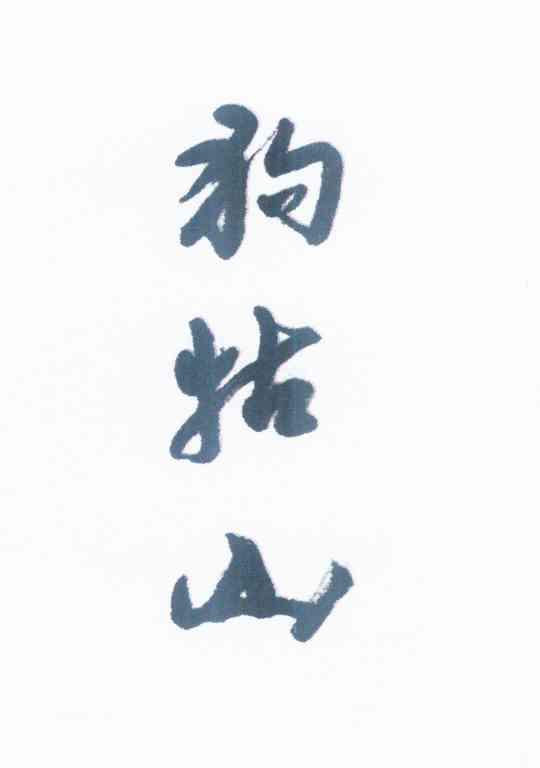 狗牯山